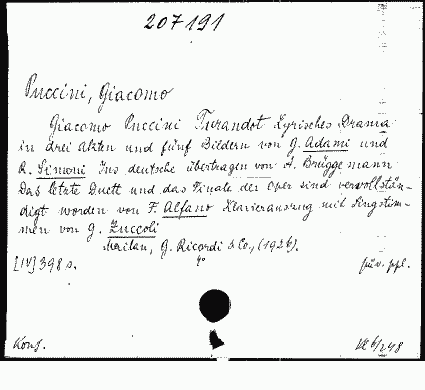 207191
Puccini, Giacomo
Giacomo Puccini Turandot Lyrisches Drama
in drei Akten und fünf Bildern von G. Adami und
R. Simoni Ins deutsche übertragen von A. Brüggemann
Das letzte Duett und das Finale der Oper sind vervollstän-
digt worden von F. Alfano Klavierauszug mit Singstim-
men von G. Zuccoli
Mailan, G. Ricordi & Co, (1926).
[IV] 398 s. 4°
Konf.